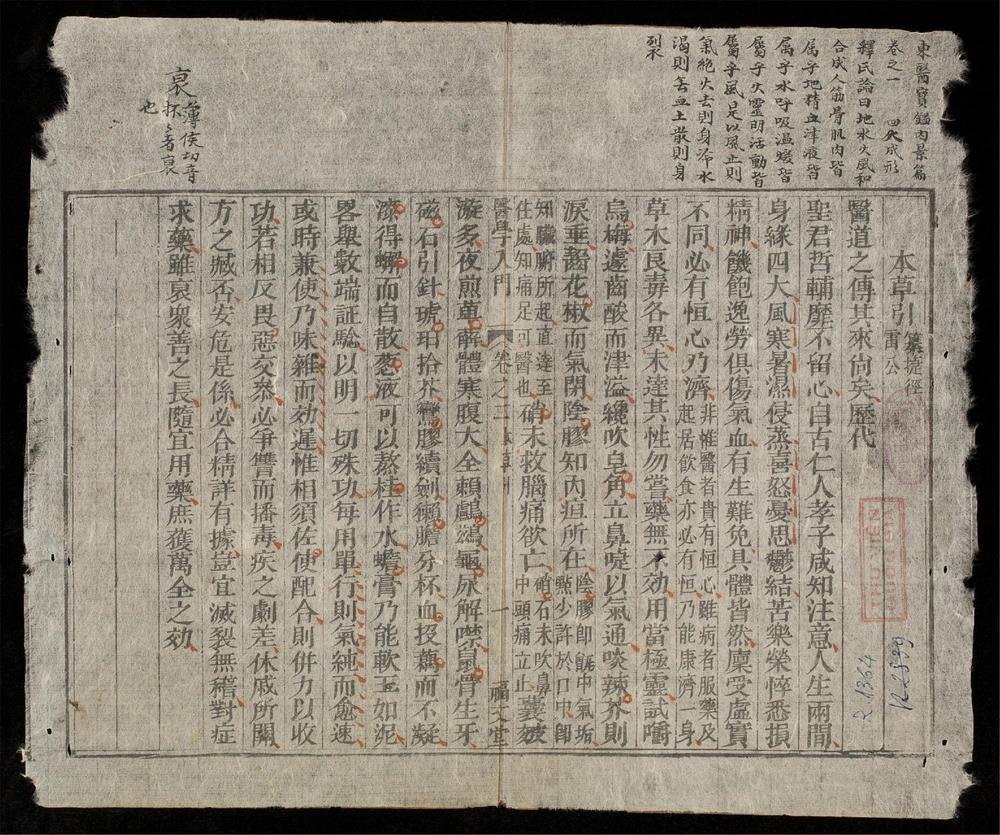 東醫寶鑑內景篇
卷之一　四大成形
釋氏論曰地水火風和
合成人筋骨肌肉皆
属乎地精血津液皆
属乎水呼吸温煖皆
屬乎火靈明活動皆
屬乎風是以風止則
氣絶火去則身冷水
渴則無血土散則身
裂
本草引 纂捷徑 雷公
醫道之傳其來尙矣歷代
聖君哲輔靡不留心自古仁人孝子咸知注意人生兩間
身緣四大風寒暑濕侵蒸喜怒憂思鬱結苦樂榮悴悉損
精神饑飽逸勞俱傷氣血有生難免具體皆然稟受虛實
不同必有恒心乃濟 非惟醫者貴有恒心雖病者服藥及
起居飲食亦必有恒乃能康濟一身
草木良毒各異未達其性勿嘗藥無不効用當極靈試嚼
烏梅遽齒酸而津溢纔吹皂角立鼻嚏以氣通啖辣芥則
淚垂齧花椒而氣閉陰膠知內疸所在 陰膠卽甑中氣垢
點少許於口中卽
知臟腑所起直達至
住處知痛足可醫也 硝末救腦痛欲亡 硝石末吹鼻
中頭痛立止 蓑苃
醫學入門 卷之二 本草 一 福文堂
漩多夜煎萆解體寒腹大全賴鸕鷀龜尿解噤鼠骨生牙
磁石引針琥珀拾芥鸞膠續劍獺膽分杯血投藕而不凝
漆得蠏而自散葱液可以熬桂作水蟾膏乃能軟玉如泥
畧舉數端証驗以明一切殊功每用單行則氣純而愈速
或時兼使乃味雜而効遲惟相須佐使配合則併力以收
功若相反畏惡交叅必爭讐而播毒疾之劇差休戚所關
方之臧否安危是係必合精詳有據豈宜滅裂無稽對症
求藥雖裒衆善之長隨宜用藥庶獲萬全之効
裒 薄侯切音
抔
也
2.1364
12-2899